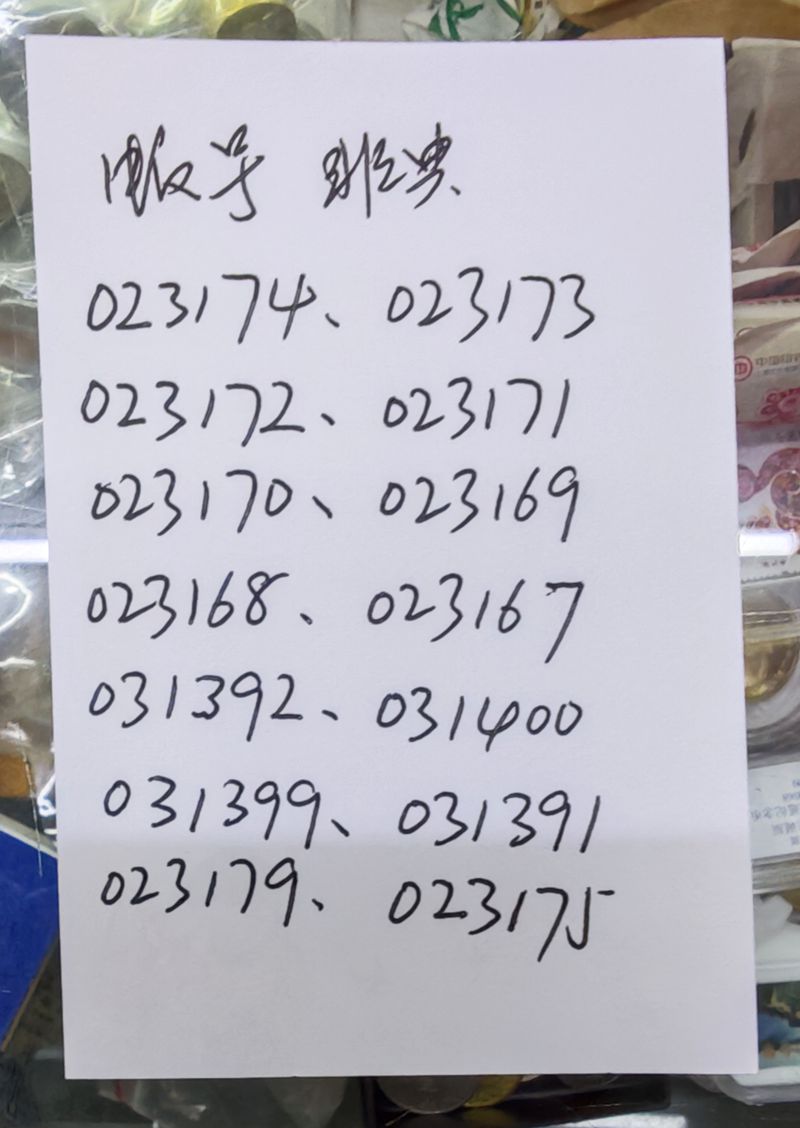 号
023174、023173
023172、023171
023170、023169
023168、023167
031392、031400
031399、031391
023179、023175